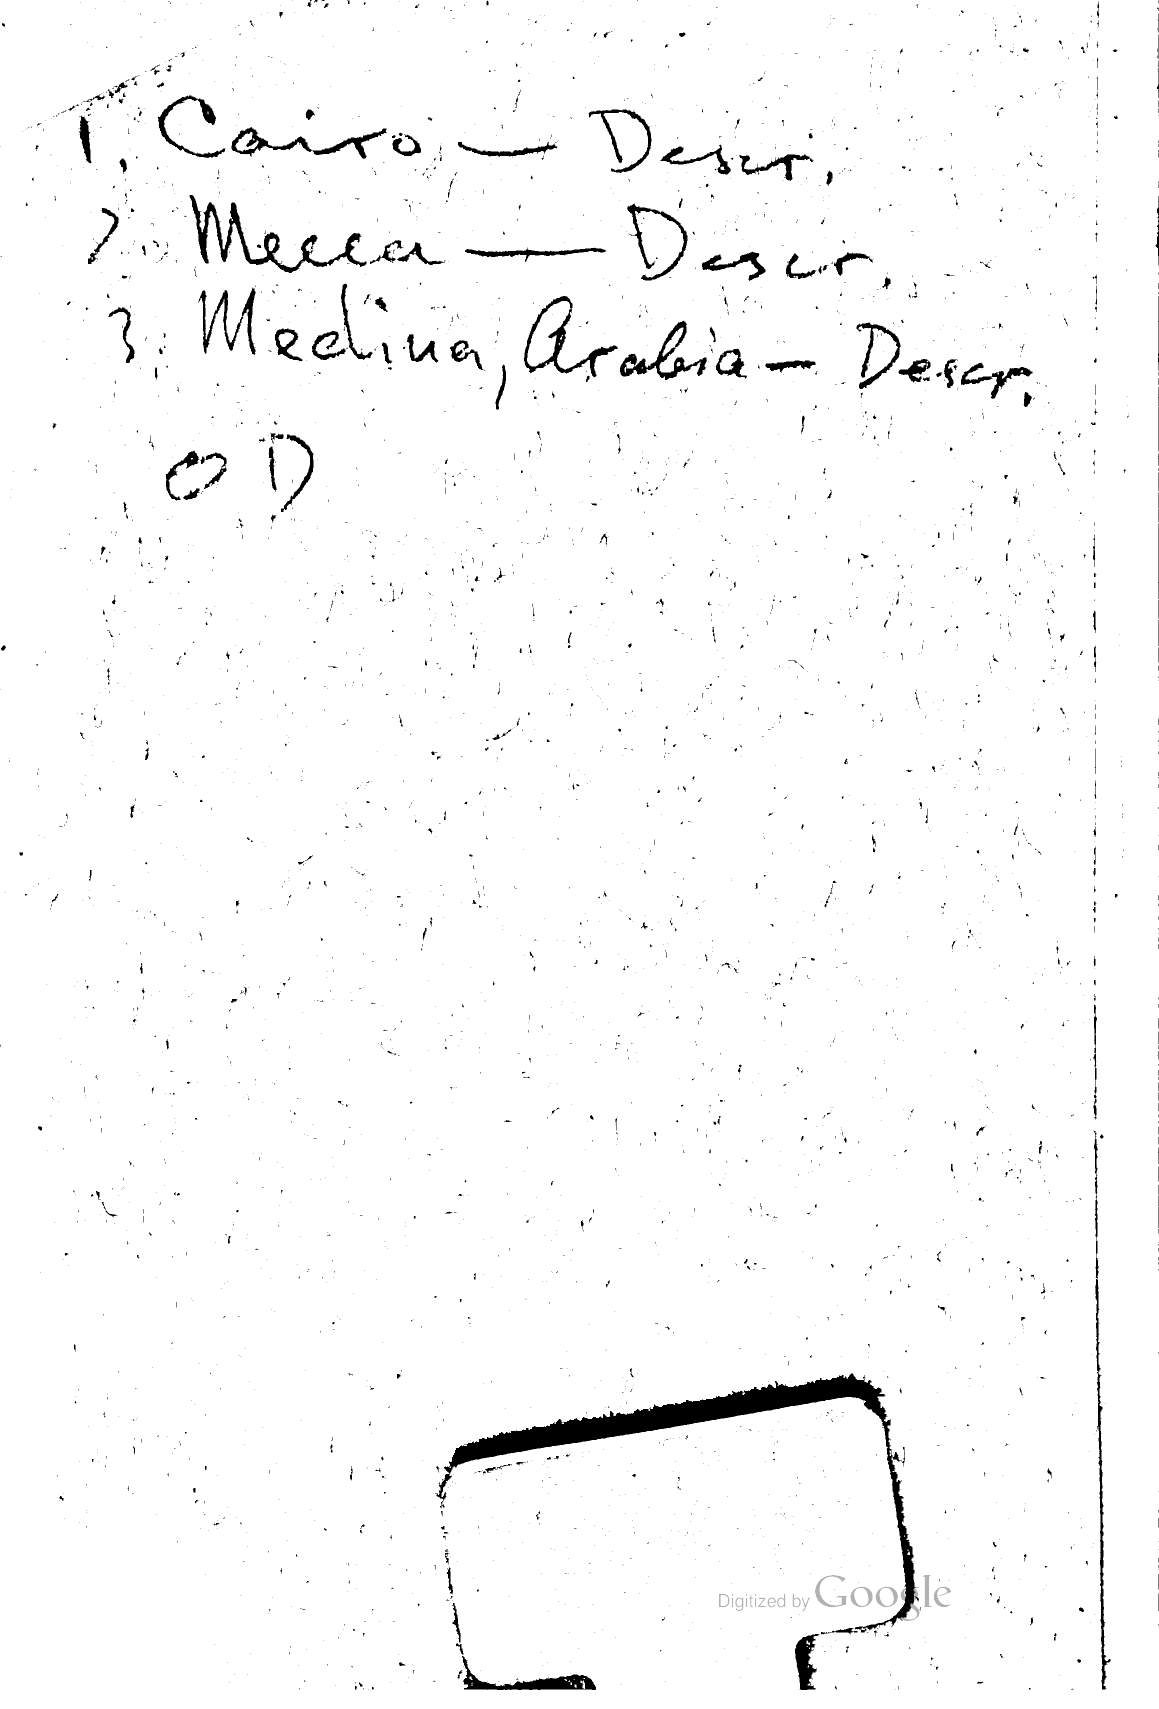 1. Cairo — Descr.
2. Mecca — Descr.
3. Medina, Arabia — Descr.
OD
Digitized by Google